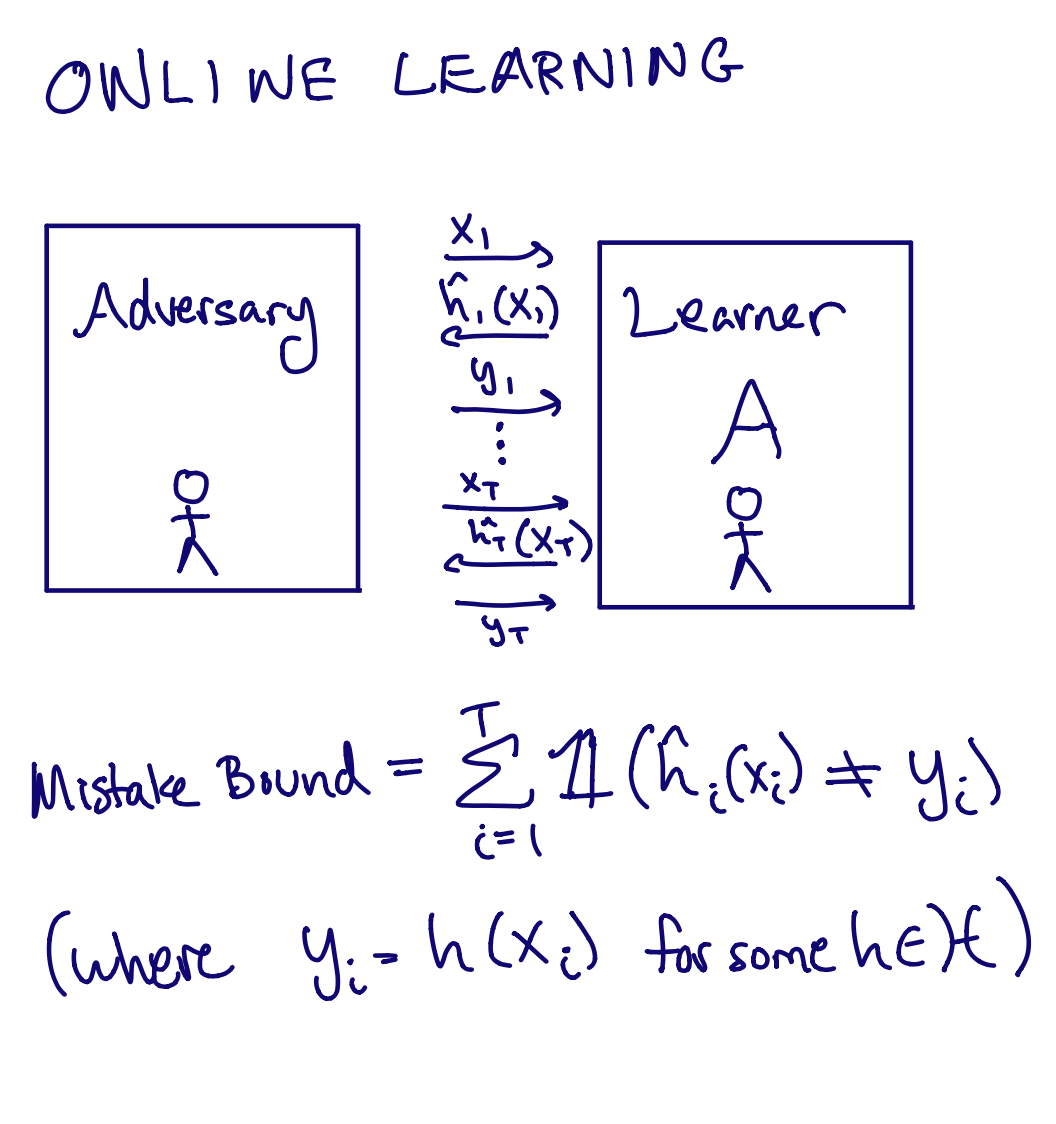 ONLINE LEARNING
Adversary
x₁
ĥ₁(x₁)
y₁
⋮
x_T
ĥ_T(x_T)
y_T
Learner
A
Mistake Bound = ∑_{i=1}^{T} 𝟙(ĥ_i(x_i) ≠ y_i)
(where y_i = h(x_i) for some h∈ℋ)